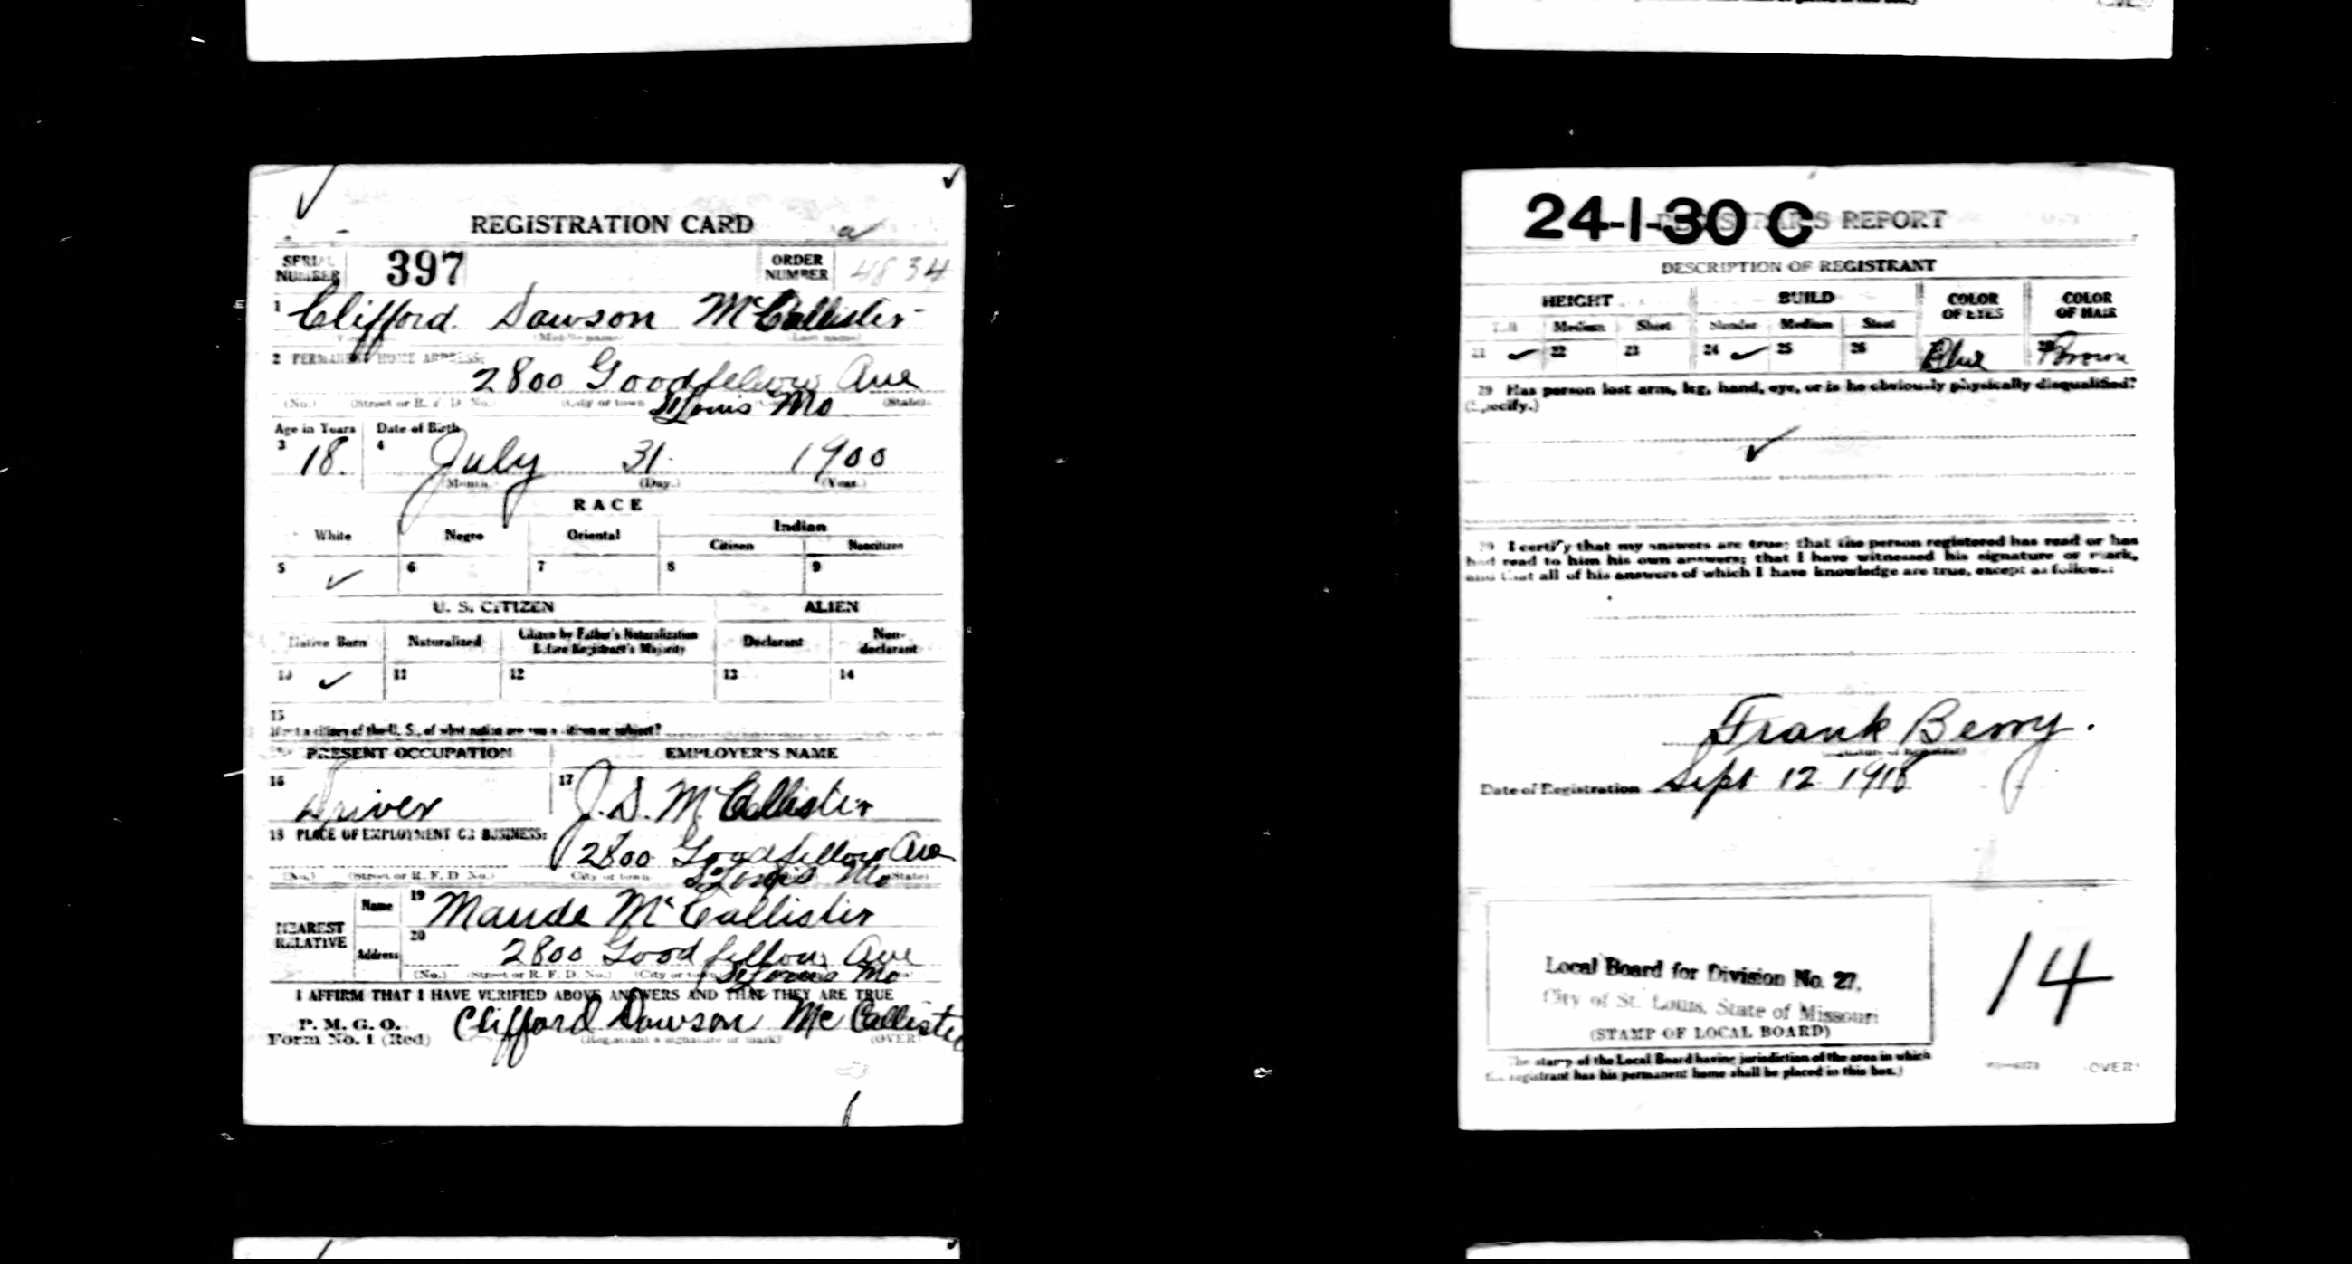 REGISTRATION CARD
SERIAL NUMBER 397 ORDER NUMBER 4834
1 Clifford Dawson McCallister
(Middle name) (Last name)
2 PERMANENT HOME ADDRESS:
2800 Goodfellow Ave
(No.) (Street or R. F. D. No.) (City or town) St Louis Mo (State)
Age in Years Date of Birth
3 18 4 July 31 1900
(Month.) (Day.) (Year.)
RACE
White Negro Oriental Indian
Citizen Noncitizen
5 ✓ 6 7 8 9
U. S. CITIZEN ALIEN
Native Born Naturalized Citizen by Father's Naturalization Before Registrant's Majority Declarant Non-declarant
10 ✓ 11 12 13 14
15
If not a citizen of the U. S., of what nation are you a citizen or subject?
PRESENT OCCUPATION EMPLOYER'S NAME
16 Driver 17 J. D. McCallister
18 PLACE OF EMPLOYMENT OR BUSINESS:
2800 Goodfellow Ave
(No.) (Street or R. F. D. No.) (City or town) St Louis Mo (State)
NEAREST RELATIVE
Name 19 Maude McCallister
Address 20 2800 Goodfellow Ave
(No.) (Street or R. F. D. No.) (City or town) St Louis Mo
I AFFIRM THAT I HAVE VERIFIED ABOVE ANSWERS AND THAT THEY ARE TRUE
P. M. G. O.
Form No. 1 (Red) Clifford Dawson McCallister
(Registrant's signature or mark) (OVER)
24-1-30 C
REGISTRAR'S REPORT
DESCRIPTION OF REGISTRANT
HEIGHT BUILD COLOR OF EYES COLOR OF HAIR
Tall Medium Short Slender Medium Stout
21 ✓ 22 23 24 ✓ 25 26 Blue 28 Brown
29 Has person lost arm, leg, hand, eye, or is he obviously physically disqualified?
(Specify.)
✓
I certify that my answers are true; that the person registered has read or has
had read to him his own answers; that I have witnessed his signature or mark,
and that all of his answers of which I have knowledge are true, except as follows:
Frank Berry.
(Signature of Registrar)
Date of Registration Sept 12 1918
Local Board for Division No. 27,
City of St. Louis, State of Missouri
(STAMP OF LOCAL BOARD)
14
The stamp of the Local Board having jurisdiction of the area in which
the registrant has his permanent home shall be placed in this box.)
(OVER)